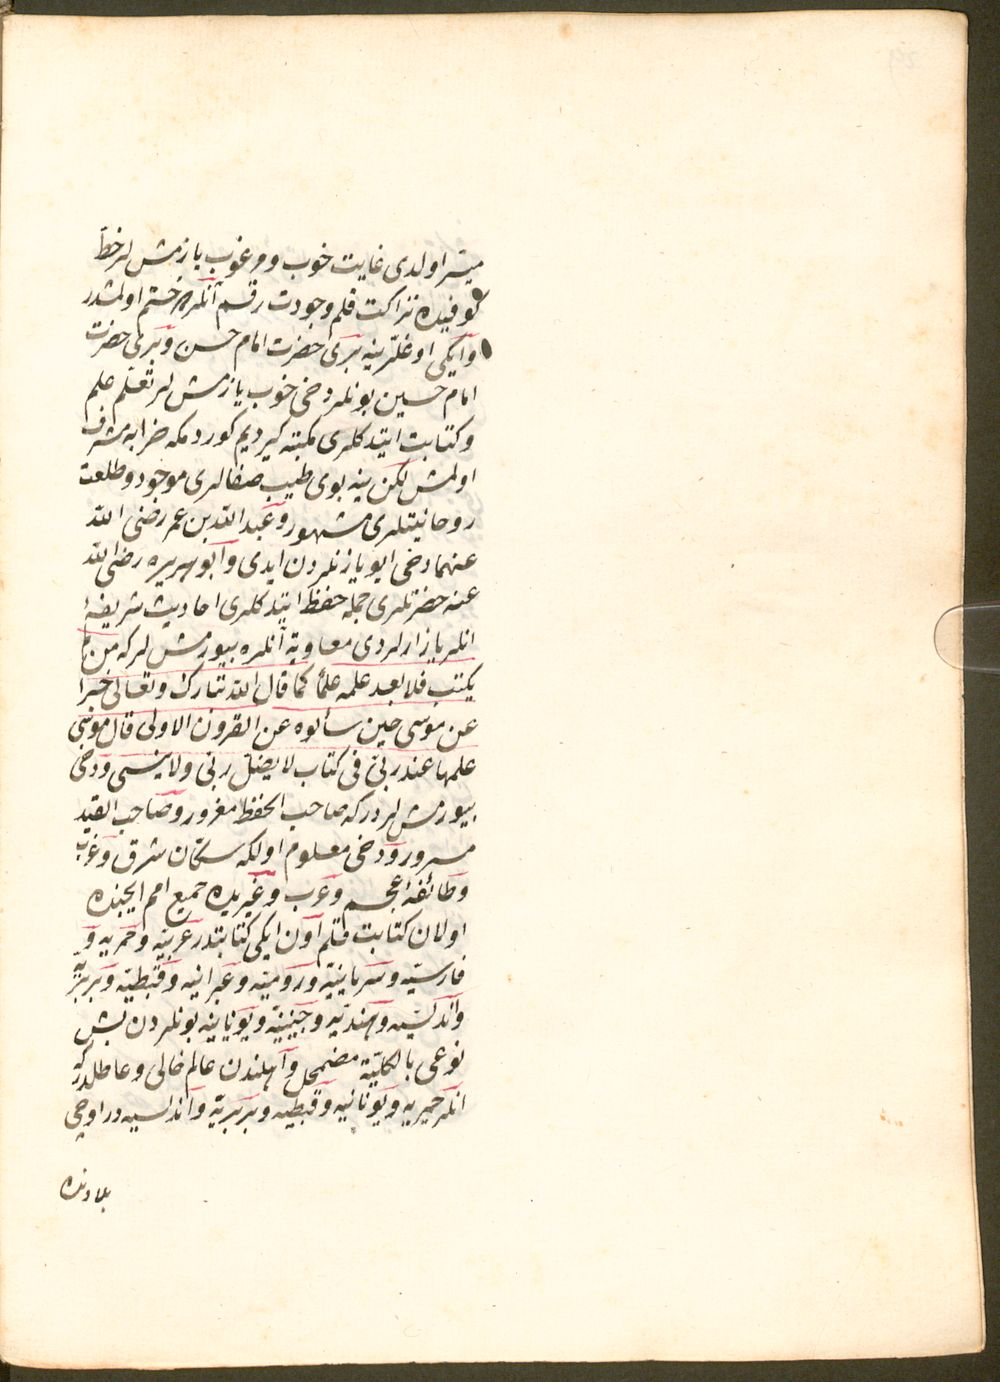 میسر اولدی غایت خوب و مرغوب یازمشلر خط
کوفیده نزاکت قلم و جودت رقم آنلره ختم اولمشدر
و ایکی اوغللرینه بری حضرت امام حسن و بری حضرت
امام حسین بونلر دخی خوب یازمشلر تعلم علم
و کتابت ایتدکلری مکتبه کیردیم کوردمکه خرابه مشرف
اولمش لکن ینه بوی طیب صفالری موجود و طلعت
روحانیتلری مشهور و عبد الله بن عمر رضی الله
عنهما دخی ایو یازنلردن ایدی و ابو هریره رضی الله
عنه حضرتلری جمله حفظ ایتدکلری احادیث شریفهٔ
انلر یازارلردی معاویة آنلره بیورمشلر که من لم
یکتب فلا یعد علمه علما کما قال الله تبارک وتعالی خبرا
عن موسی حین سألوه عن القرون الاولی قال موسی
علمها عند ربی فی کتاب لا یضل ربی ولا ینسی ودخی
بیورمشلردر که صاحب الحفظ مغرور و صاحب القید
مسرور و دخی معلوم اولکه سکان شرق و غرب
و طائفهٔ عجم و عرب و غیریده جمیع امم ایچنده
اولان کتابت قلم اون ایکی کتابتدر عربیه و حمریه و
فارسیه و سریانیه و رومیه و عبرانیه و قبطیه و بربریه
و اندلسیه و هندیه و چینیه و یونانیه بونلردن بش
نوعی بالکلیة مضمحل و اهلندن عالم خالی و عاطلدر که
انلر حمیریه و یونانیه و قبطیه و بربریه و انداسیه در اوچی
بلادنده